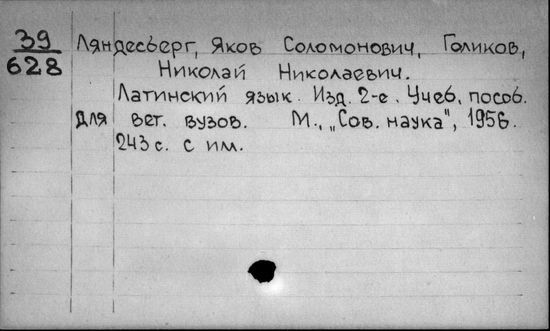 39
628
Ляндесберг, Яков Соломонович, Голиков,
Николай Николаевич.
Латинский язык. Изд. 2-е. Учеб. пособ.
для вет. вузов. М., „Сов. наука", 1956.
243 с. с илл.